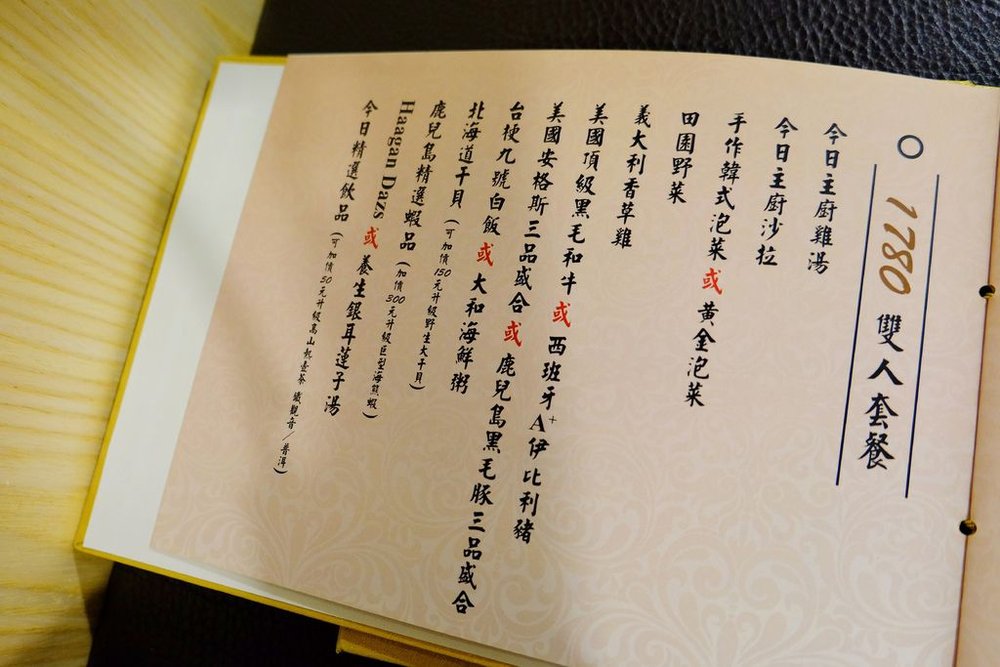 1780 雙人套餐
今日主廚雞湯
今日主廚沙拉
手作韓式泡菜或黃金泡菜
田園野菜
義大利香草雞
美國頂級黑毛和牛或西班牙A+伊比利豬
美國安格斯三品盛合或鹿兒島黑毛豚三品盛合
台梗九號白飯或大和海鮮粥
北海道干貝(可加價150元升級野生大干貝)
鹿兒島精選蝦品(加價300元升級巨型海熊蝦)
Haagan Dazs或養生銀耳蓮子湯
今日精選飲品(可加價50元升級高山熱壺茶 鐵觀音/普洱)